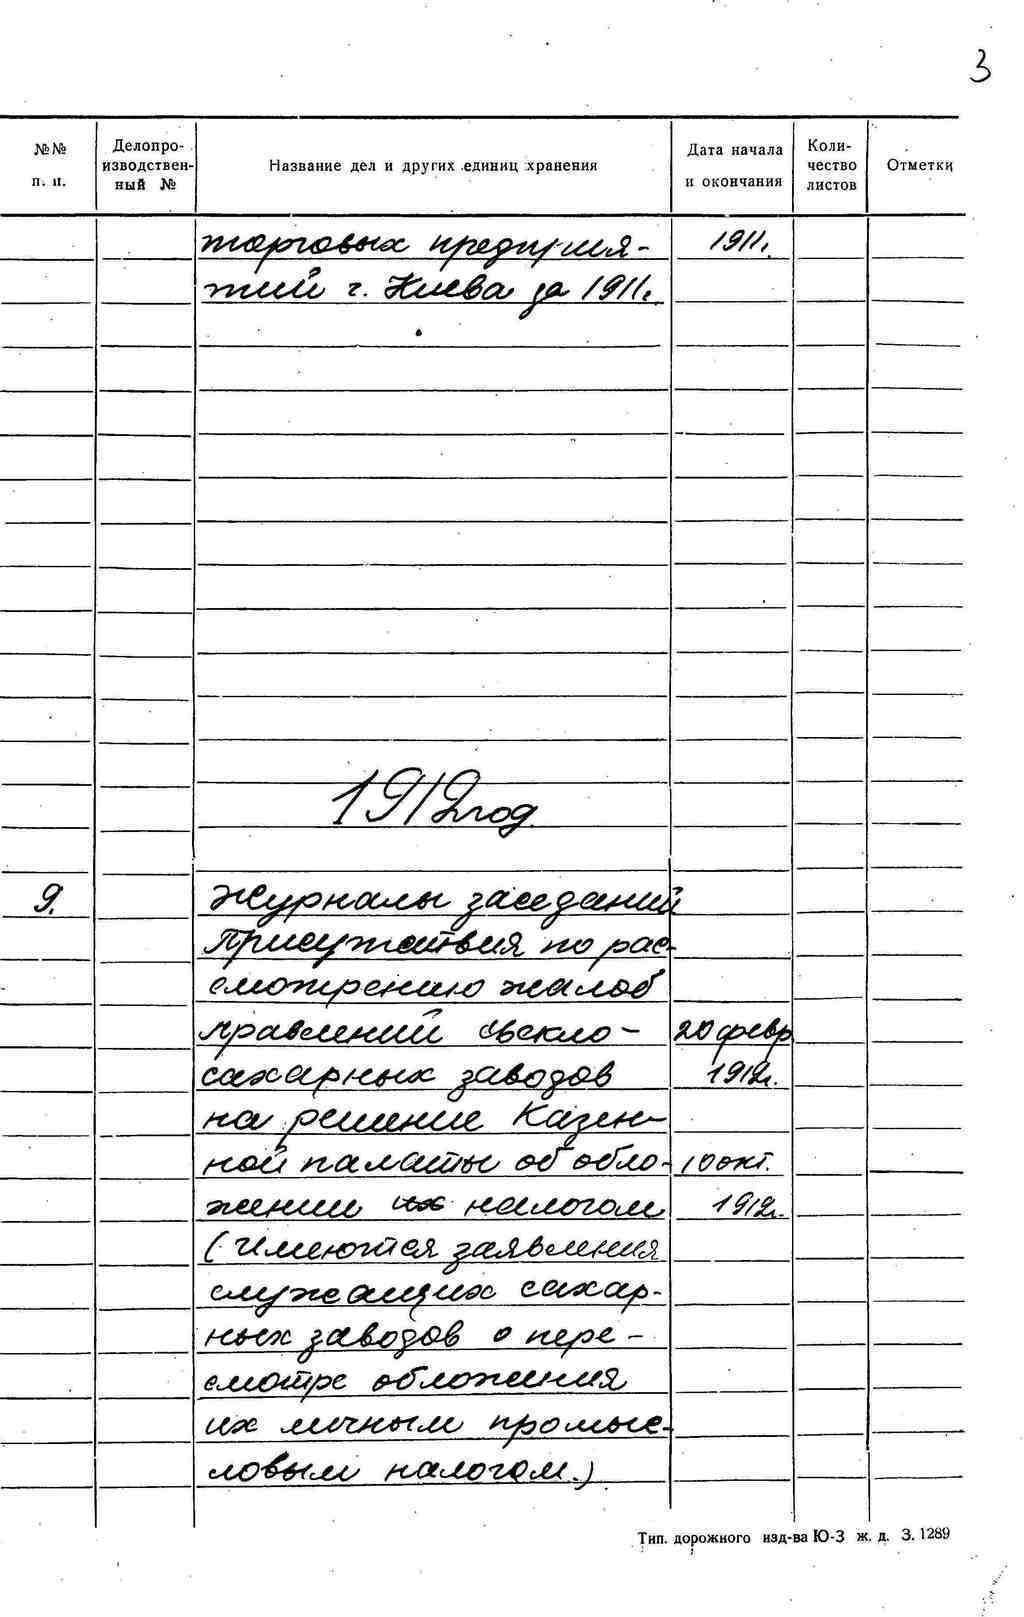 3
№№ п. п. Делопро-изводствен-ный № Название дел и других единиц хранения Дата начала и окончания Коли-чество листов Отметки
торговых предприя- 1911г.
тий г. Киева за 1911г.
1912 год
9. Журналы заседаний
Присутствия по рас-
смотрению жалоб
правлений свекло- 20 февр
сахарных заводов 1912г.
на решение Казен-
ной палаты об обло- 10 окт.
жении их налогом 1912г.
(Имеются заявления
служащих сахар-
ных заводов о пере-
смотре обложения
их личным промыс-
ловым налогом.)
Тип. дорожного изд-ва Ю-З ж. д. З. 1289